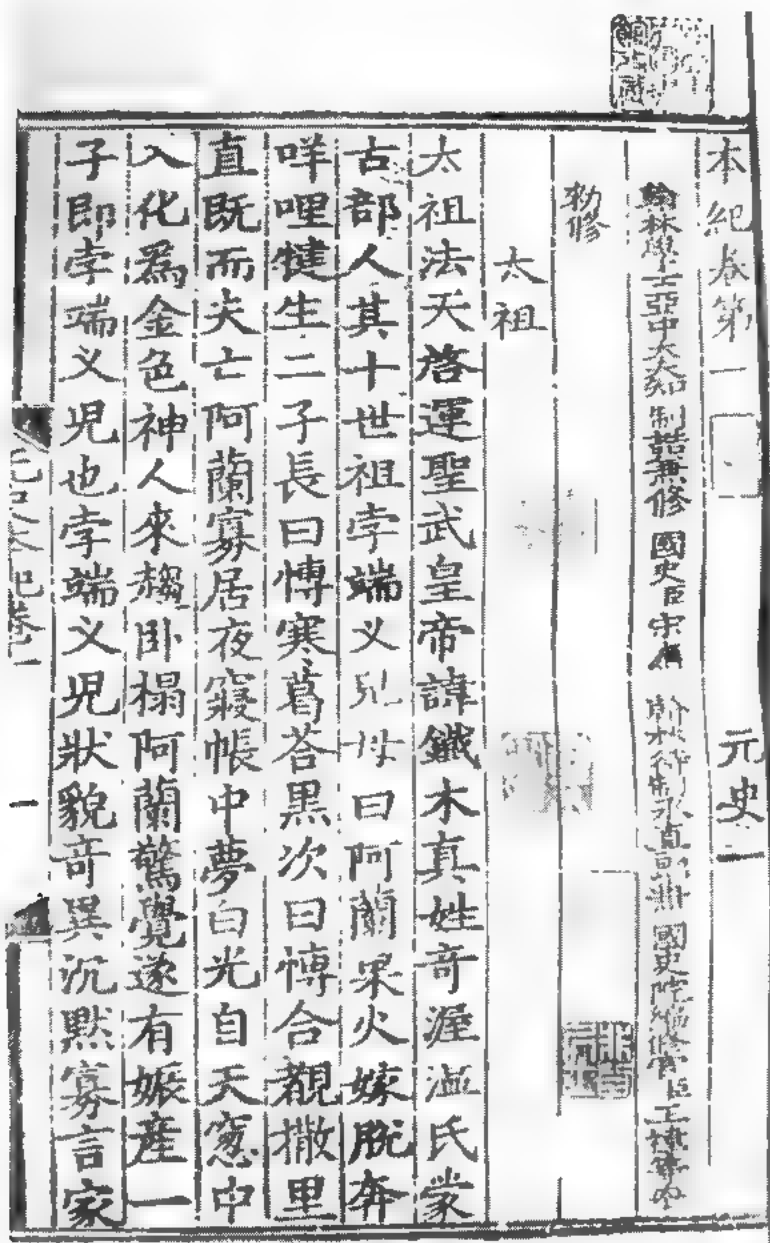 本紀卷第一　元史一
翰林學士亞中大夫知制誥兼修國史臣宋濂　翰林待制承直郎兼國史院編修官臣王褘等奉
勑修
太祖
太祖法天啓運聖武皇帝諱鐵木真姓奇渥溫氏蒙
古部人其十世祖孛端义兒母曰阿蘭果火嫁脫奔
咩哩犍生二子長曰博寒葛荅黑次曰博合覩撒里
直既而夫亡阿蘭寡居夜寢帳中夢白光自天窻中
入化為金色神人來趨卧榻阿蘭驚覺遂有娠產一
子即孛端义兒也孛端义兒狀貌奇異沉默寡言家
元史本紀卷一
一